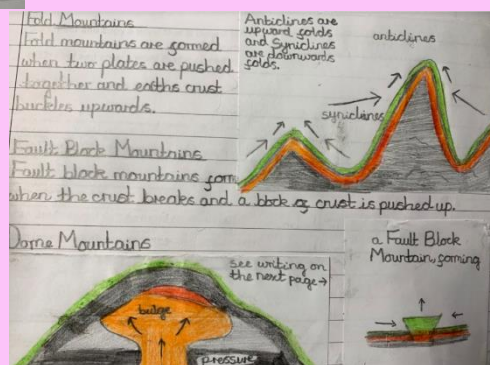 Fold Mountains
Fold mountains are formed
when two plates are pushed
together and earths crust
buckles upwards.
Anticlines are
upward folds
and Syniclines
are downwards
folds.
anticlines
syniclines
Fault Block Mountains
Fault block mountains form
when the crust breaks and a block of crust is pushed up.
Dome Mountains
see writing on
the next page→
bulge
pressure
a Fault Block
Mountain forming